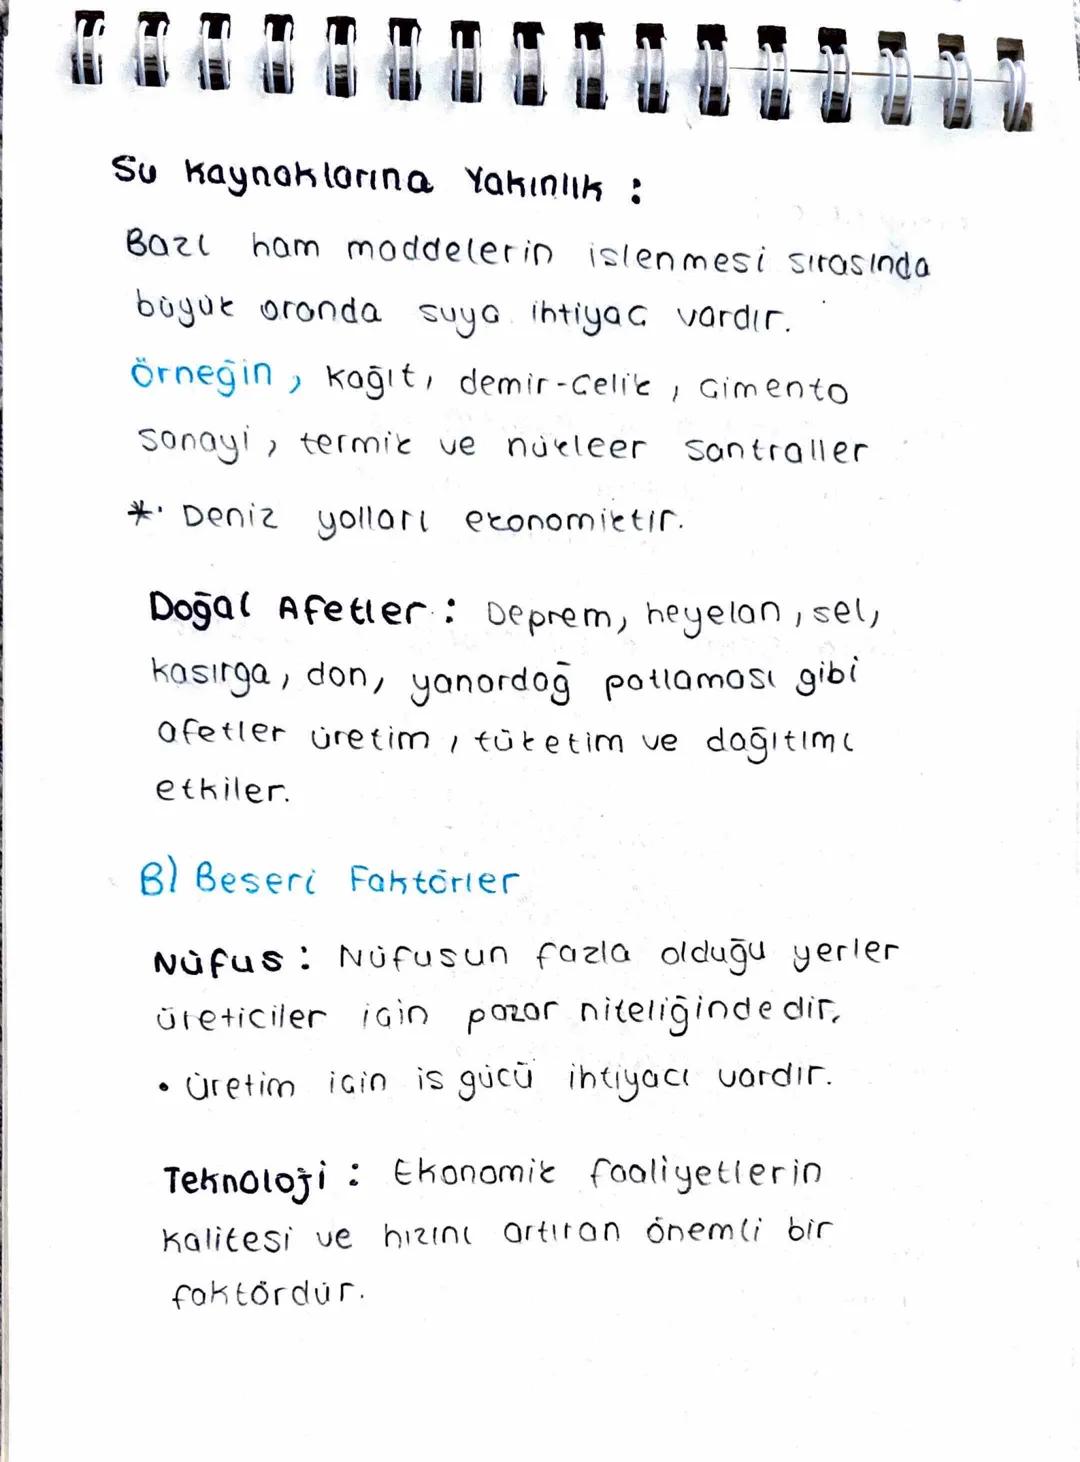 Su Kaynaklarına Yakınlık :
Bazı ham maddelerin islenmesi sırasında
büyük oranda suya ihtiyaç vardır.
Örneğin, kağıt, demir-çelik, çimento
sanayi, termik ve nükleer santraller
*· Deniz yolları ekonomiktir.
Doğal Afetler : Deprem, heyelan, sel,
kasırga, don, yanardağ patlaması gibi
afetler üretim, tüketim ve dağıtımı
etkiler.
B) Beseri Faktörler
Nüfus : Nüfusun fazla olduğu yerler
üreticiler için pazar niteliğindedir.
• üretim için is gücü ihtiyacı vardır.
Teknoloji : Ekonomik faaliyetlerin
kalitesi ve hızını artıran önemli bir
faktördür.